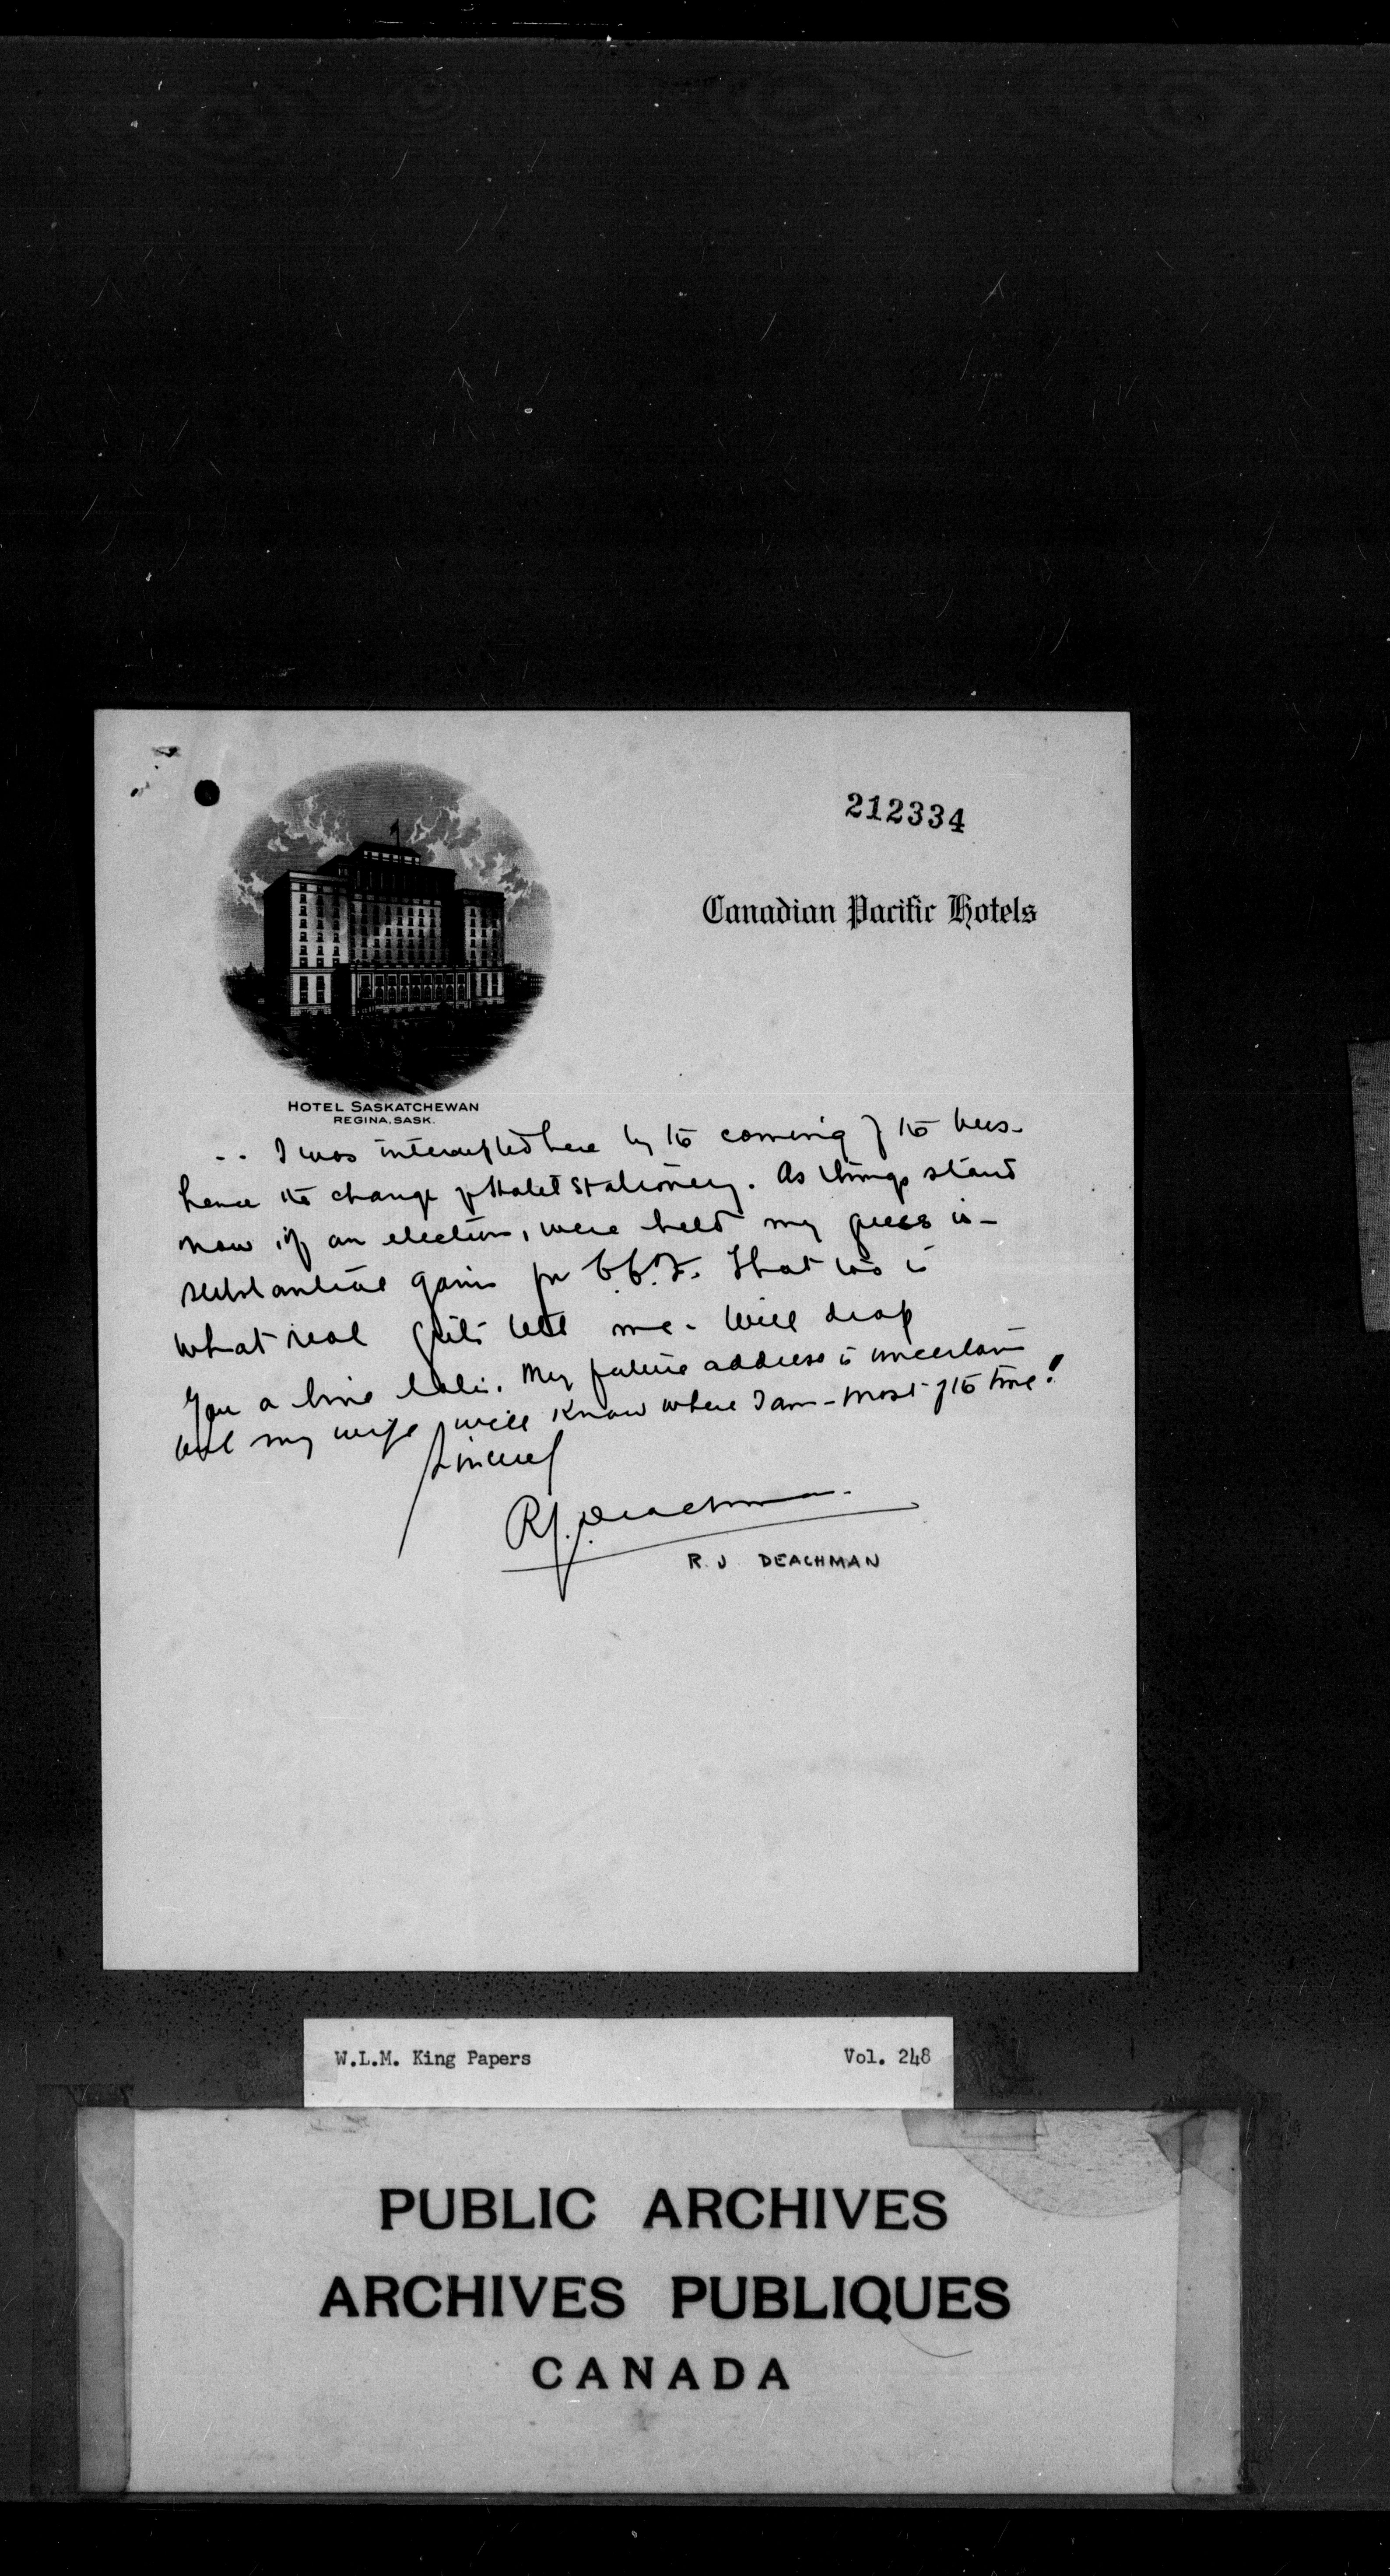 212334
Canadian Pacific Hotels
HOTEL SASKATCHEWAN
REGINA, SASK.
.. I was interrupted here by the coming of the bus -
hence the change of Hotel Stationery. As things stand
now if an election, were held my guess is -
substantial gains for C.C.F. That too is
what real tell me - Will drop
you a line later. My future address is uncertain
but my wife will know where I am - most of the time!
Sincerely
R.J. Deachman.
R. J DEACHMAN
W.L.M. King Papers Vol. 248
PUBLIC ARCHIVES
ARCHIVES PUBLIQUES
CANADA